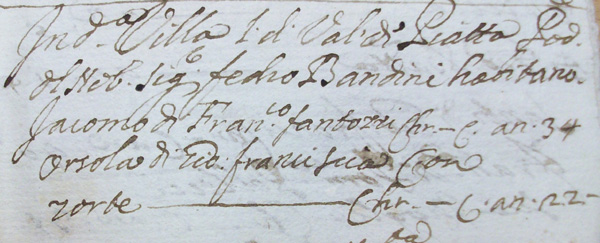 In d.ª Villa l. d. Val di Piatta Pod.
del Nob. Sig.e fedro Bandini habitano.
Jacomo di Fran.co fantozzi Chr. – C. an. 34
Orsola di francisci Con
zorte — Chr. – C. an. 22 –